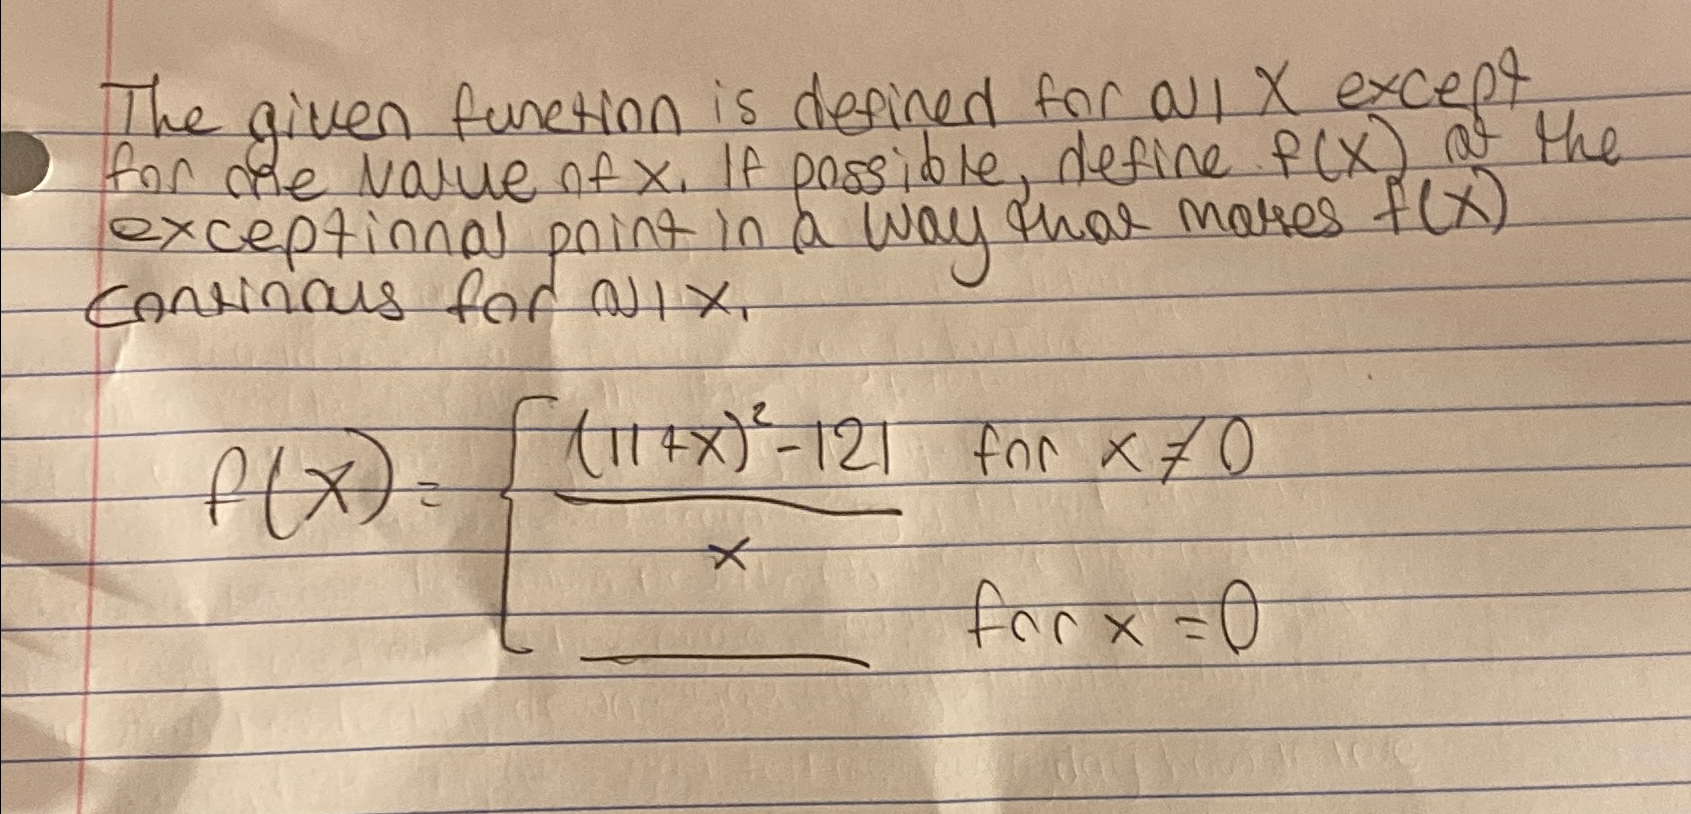 The given function is defined for all x except
for one value of x. If possible, define f(x) at the
exceptional point in a way that makes f(x)
continous for all x.
f(x) = { (11+x)²-121 for x ≠ 0
x
____ for x = 0